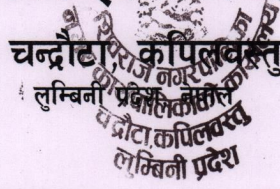 चन्द्रौटा, कपिलवस्तु
लुम्बिनी प्रदेश, नेपाल
शिवराज नगरपालिका
नगर कार्यपालिकाको कार्यालय
चन्द्रौटा, कपिलवस्तु
लुम्बिनी प्रदेश